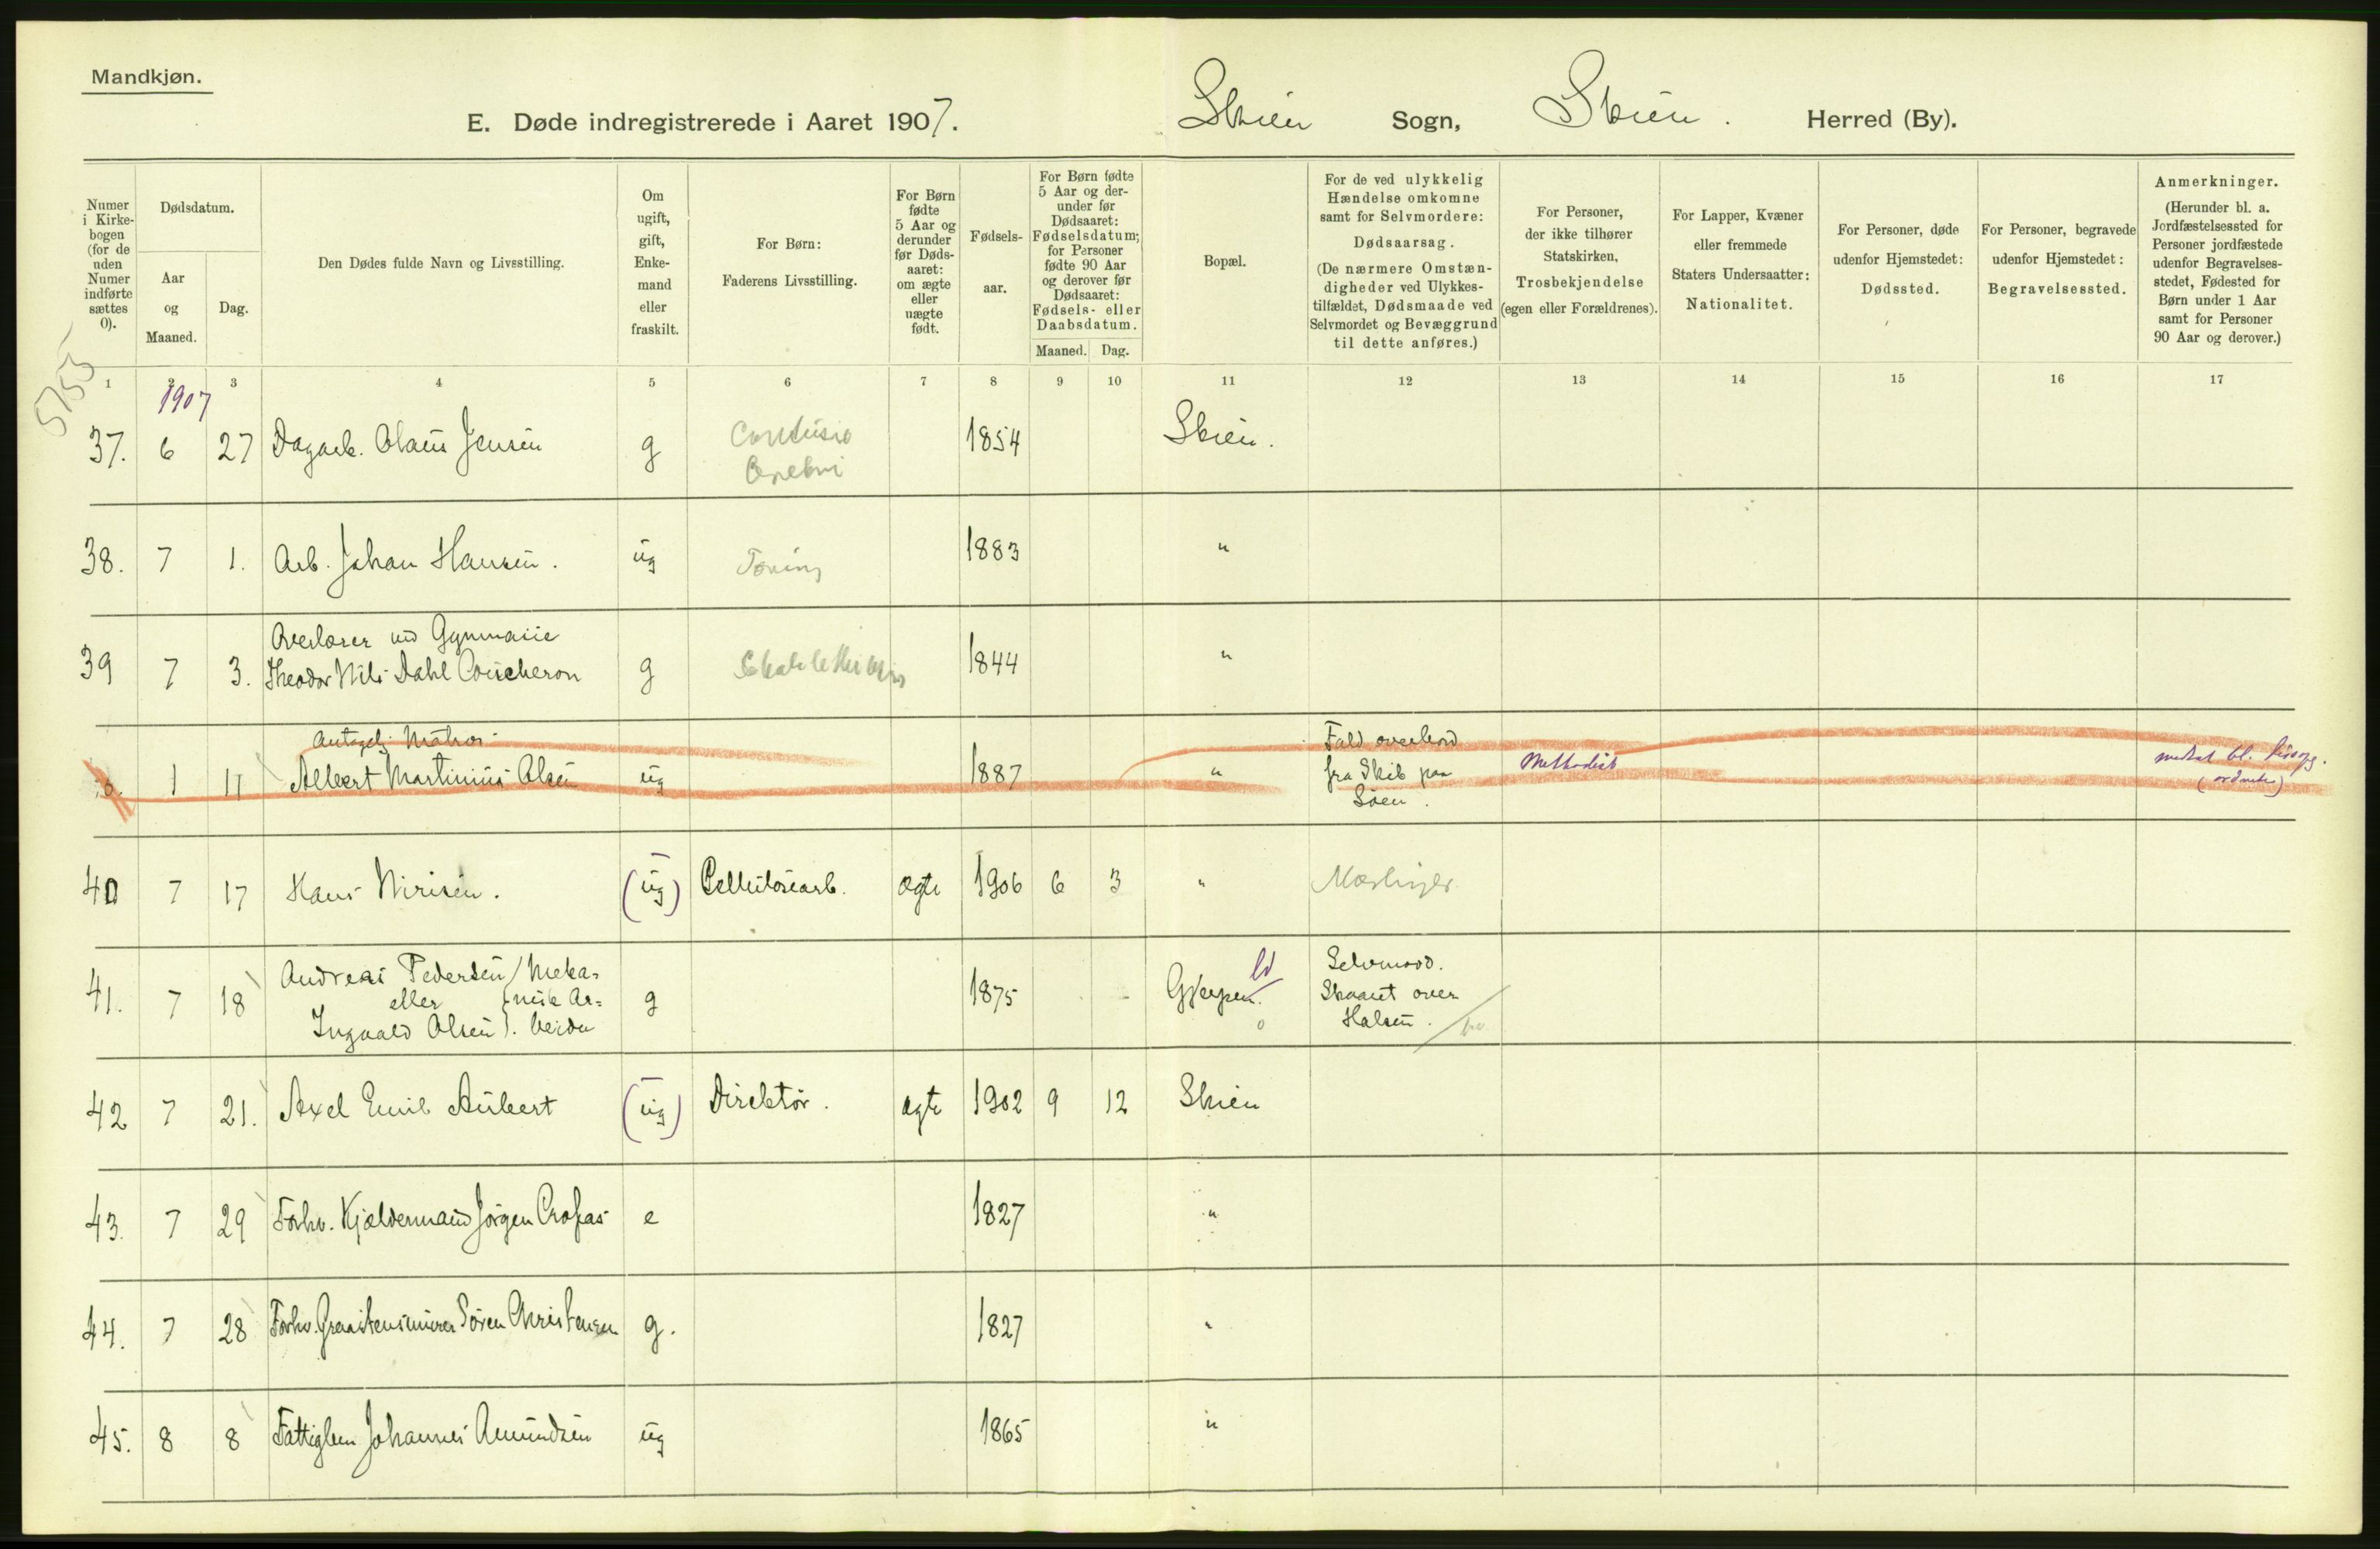 Mandkjøn.
E. Døde indregistrerede i Aaret 1907. Skien Sogn, Skien. Herred (By).
Numer i Kirke-bogen (for de uden Numer indførte sættes 0).
Dødsdatum.
Aar og Maaned.
Dag.
Den Dødes fulde Navn og Livsstilling.
Om ugift, gift, Enke-mand eller fraskilt.
For Børn: Faderens Livsstilling.
For Børn fødte 5 Aar og derunder før Døds-aaret: om ægte eller uægte født.
Fødsels-aar.
For Børn fødte 5 Aar og der-under før Dødsaaret: Fødselsdatum; for Personer fødte 90 Aar og derover før Dødsaaret: Fødsels- eller Daabsdatum.
Maaned. Dag.
Bopæl.
For de ved ulykkelig Hændelse omkomne samt for Selvmordere: Dødsaarsag. (De nærmere Omstæn-digheder ved Ulykkes-tilfældet, Dødsmaade ved Selvmordet og Bevæggrund til dette anføres.)
For Personer, der ikke tilhører Statskirken, Trosbekjendelse (egen eller Forældrenes).
For Lapper, Kvæner eller fremmede Staters Undersaatter: Nationalitet.
For Personer, døde udenfor Hjemstedet: Dødssted.
For Personer, begravede udenfor Hjemstedet: Begravelsessted.
Anmerkninger. (Herunder bl. a. Jordfæstelsessted for Personer jordfæstede udenfor Begravelses-stedet, Fødested for Børn under 1 Aar samt for Personer 90 Aar og derover.)
1 2 3 4 5 6 7 8 9 10 11 12 13 14 15 16 17
1907
37. 6 27 Dagarb. Olaus Jensen g Contusio Cerebri 1854 Skien.
38. 7 1. Arb. Johan Hansen. ug Tæring 1883 "
Overlærer ved Gymnasie
39 7 3. Theodor Nils Dahl Coucheron g 1844 "
Antagelig Matros
0. 1 11 Albert Martinius Olsen ug 1887 " Fald overbord fra Skib paa Søen. Methodist
40 7 17 Hans Nirisen. (ug) Cellulosearb. ægte 1906 6 3 " Mæslinger
41. 7 18 Andreas Pedersen eller Ingvald Olsen). Mekanisk Arbeider g 1875 Gjerpen. Selvmord. Skaaret over Halsen.
42 7 21. Axel Emil Aubert (ug) Direktør. ægte 1902 9 12 Skien
43. 7 29 Forhv. Kjældermand Jørgen Crofas e 1827 "
44. 7 28 Forhv. Søren Christensen g. 1827 "
45. 8 8 Fattiglem Johannes Amundsen ug 1865 "